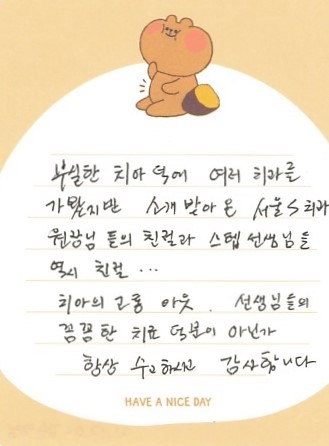 부실한 치아 덕에 여러 치과를
가봤지만 소개받아 온 서울S치과
원장님 들의 친절과 스텝 선생님들
역시 친절 ...
치아의 고통 아웃. 선생님들의
꼼꼼한 치료 덕분이 아닌가
항상 수고하시고 감사합니다
HAVE A NICE DAY